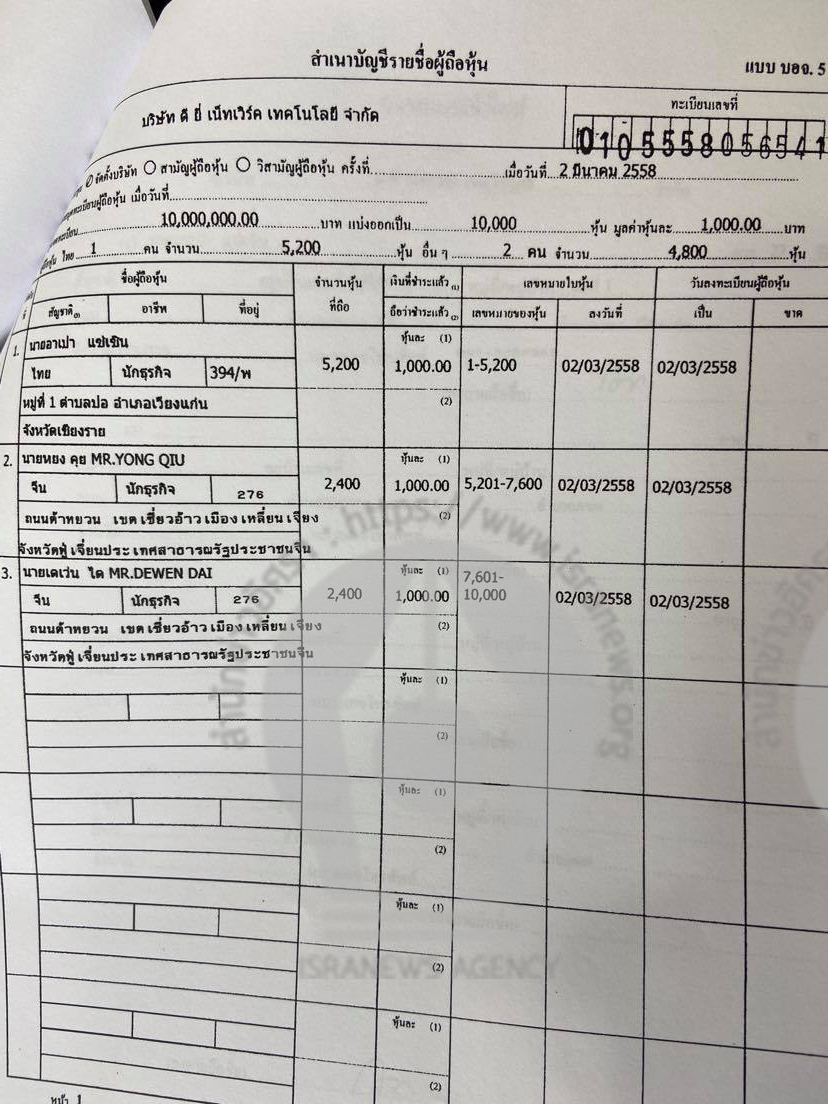 สำเนาบัญชีรายชื่อผู้ถือหุ้น
แบบ บอจ. 5
บริษัท ดี ยี่ เน็ทเวิร์ค เทคโนโลยี จำกัด
ทะเบียนเลขที่
0105558056541
จัดตั้งบริษัท สามัญผู้ถือหุ้น วิสามัญผู้ถือหุ้น ครั้งที่ เมื่อวันที่ 2 มีนาคม 2558
ผู้ถือหุ้น เมื่อวันที่
10,000,000.00 บาท แบ่งออกเป็น 10,000 หุ้น มูลค่าหุ้นละ 1,000.00 บาท
ไทย 1 คน จำนวน 5,200 หุ้น อื่น ๆ 2 คน จำนวน 4,800 หุ้น
ชื่อผู้ถือหุ้น จำนวนหุ้น เงินที่ชำระแล้ว (1) เลขหมายใบหุ้น วันลงทะเบียนผู้ถือหุ้น
สัญชาติ อาชีพ ที่อยู่ ที่ถือ ถือว่าชำระแล้ว (2) เลขหมายของหุ้น ลงวันที่ เป็น ขาด
1. นายอาเปา แซ่เซิน หุ้นละ (1)
ไทย นักธุรกิจ 394/พ 5,200 1,000.00 1-5,200 02/03/2558 02/03/2558
หมู่ที่ 1 ตำบลปอ อำเภอเวียงแก่น (2)
จังหวัดเชียงราย
2. นายหยง คุย MR.YONG QIU หุ้นละ (1)
จีน นักธุรกิจ 276 2,400 1,000.00 5,201-7,600 02/03/2558 02/03/2558
ถนนด้าหยวน เขต เซี่ยวอ้าว เมือง เหลี่ยน เจียง (2)
จังหวัดฟู่ เจี่ยนประ เทศสาธารณรัฐประชาชนจีน
3. นายเดเว่น ได MR.DEWEN DAI หุ้นละ (1) 7,601-
จีน นักธุรกิจ 276 2,400 1,000.00 10,000 02/03/2558 02/03/2558
ถนนด้าหยวน เขต เซี่ยวอ้าว เมือง เหลี่ยน เจียง (2)
จังหวัดฟู่ เจี่ยนประ เทศสาธารณรัฐประชาชนจีน
หุ้นละ (1)
(2)
หุ้นละ (1)
(2)
หุ้นละ (1)
(2)
หุ้นละ (1)
(2)
หน้า 1
สำนักข่าวอิศรา : https://www.isranews.org
ISRANEWS AGENCY